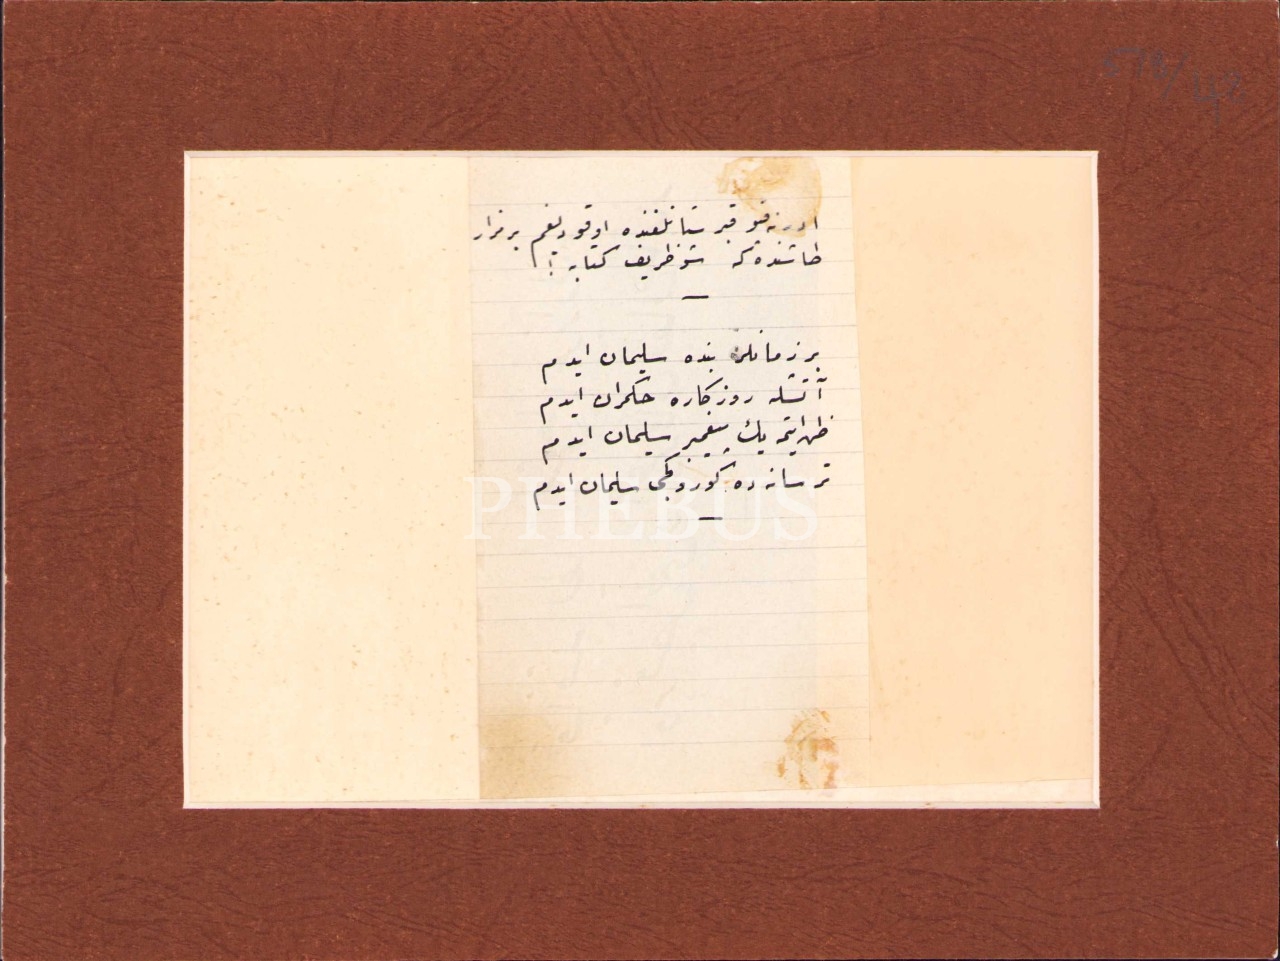 ٥٧٨/٤٧
ادرنه قپو قبرستانلغنده اوقودیغم بر مزار
طاشنده كه شو ظریف كتابه !
بر زمانلر بنده سلیمان ایدم
آتشله روزكاره حكمران ایدم
ظن ایتمه یك پیغمبر سلیمان ایدم
ترسانه ده كوروكجی سلیمان ایدم
PHEBUS